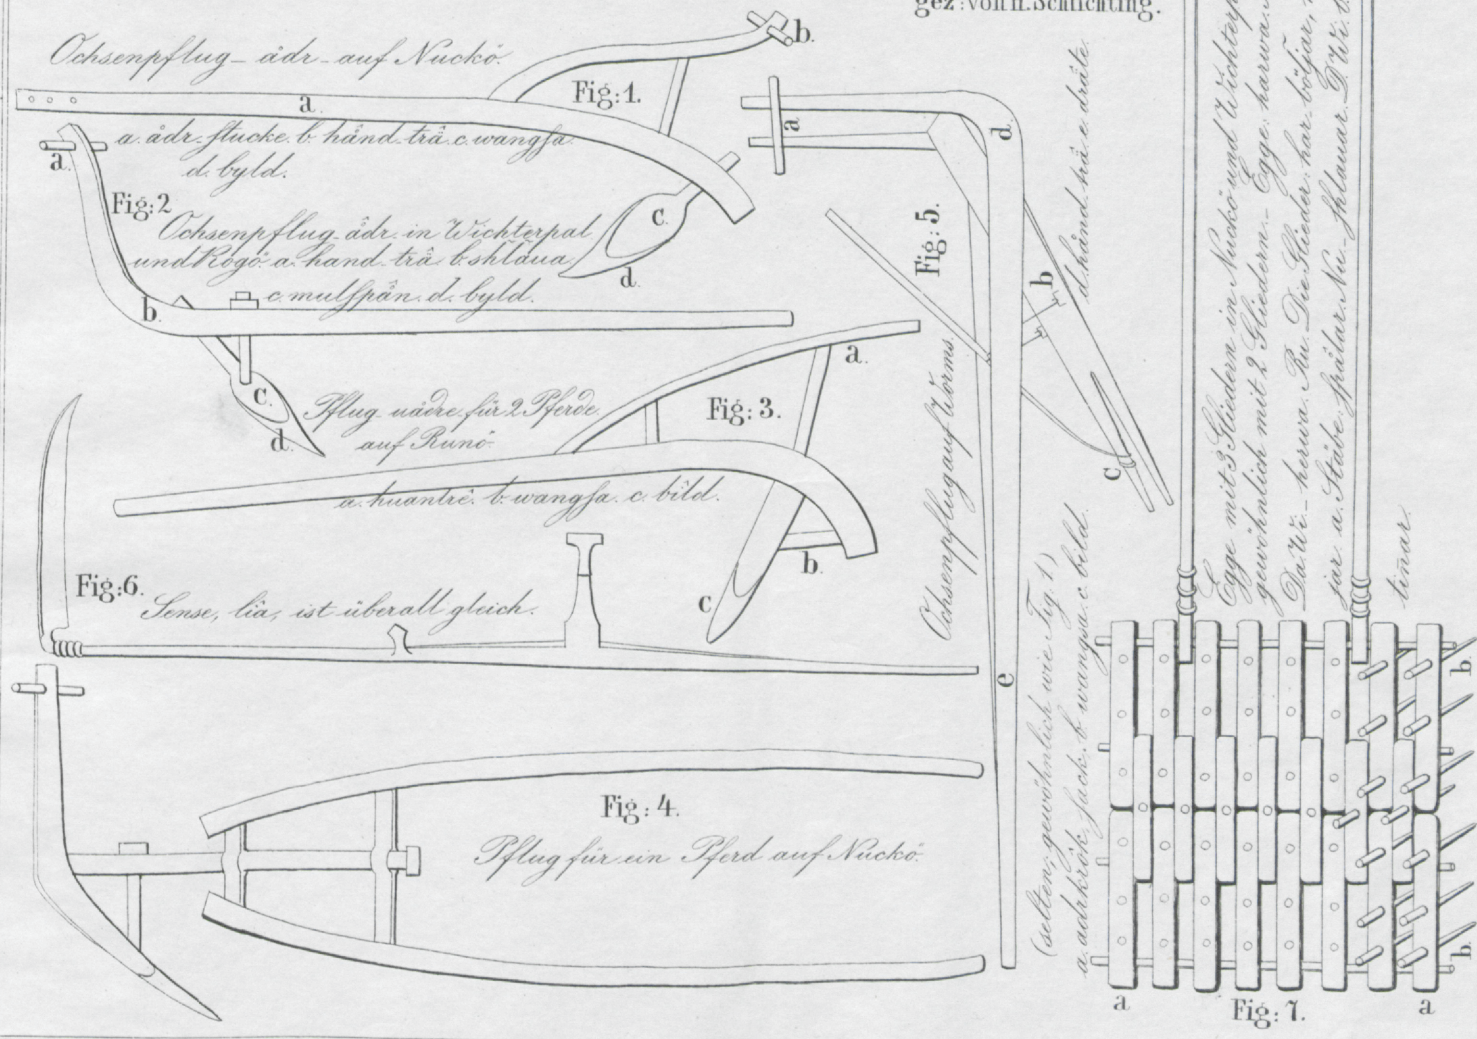 gez: von H. Schlichting.
Ochsenpflug - ådr - auf Nuckö.
Fig: 1.
a.
b.
a. ådr. stucke. b. hånd. trä. c. wangsa.
d. byld.
c.
d.
Fig: 2
a.
Ochsenpflug. ådr. in Wichterpal
und Rogö. a. hand. trä. b. shlåua.
c. mulspån. d. byld.
b.
c.
d.
Pflug für 2 Pferde
auf Runö.
Fig: 3.
a.
a. huantrè. b. wangsa. c. bild.
b.
c
Fig: 6.
Sense, lia, ist überall gleich.
Fig: 4.
Pflug für ein Pferd auf Nuckö.
Fig: 5.
a
d.
b
c
e
Ochsenpflug auf Worms.
(selten, gewöhnlich wie Fig. 1)
a. adrkrök. b. wanga. c. bild.
d. hånd. trä. e. dråte.
Egge mit 3 Gliedern in Nuckö und Wichterp
gewöhnlich mit 2 Gliedern - Egge. harwa.
Da. Wi - herwa. Ru. Die Glieder. har. böljar,
jar. a. Stäbe. spålar. Nu - shlauar. D. Wi. b.
tinar.
b.
b.
a
a
Fig: 7.